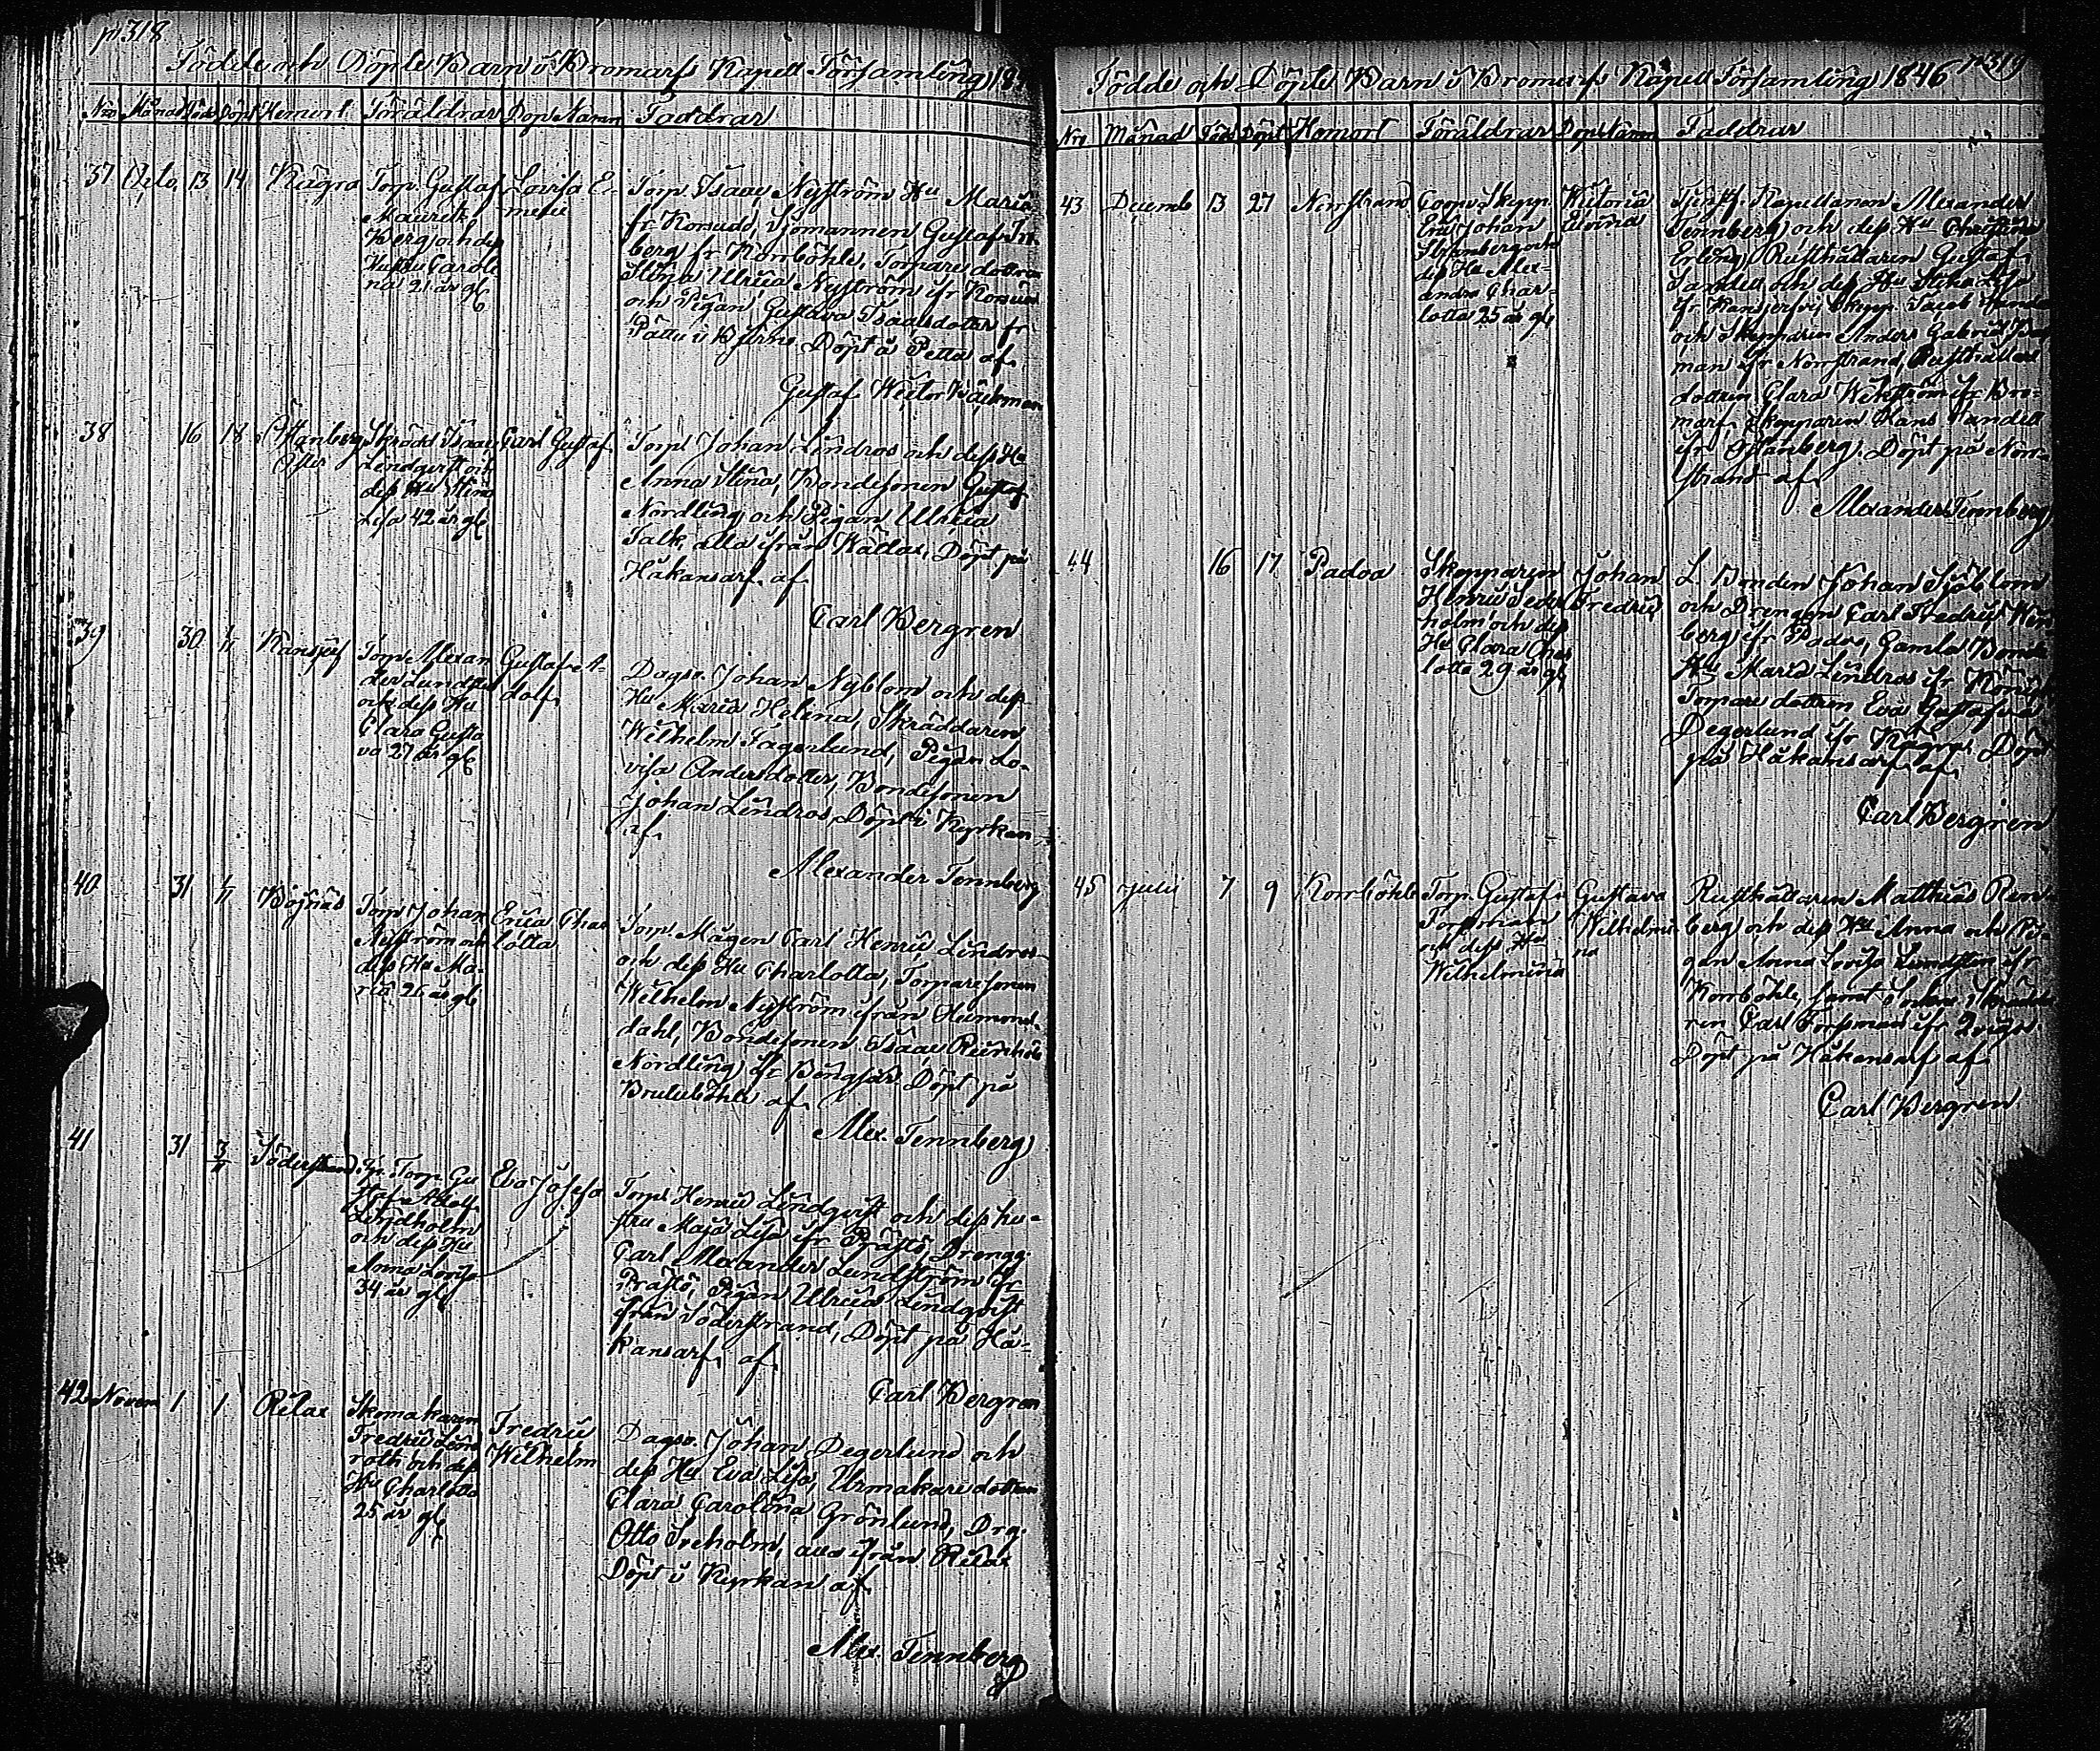 p 318
Födde och Döpte Barn i Bromarf Kapell Församling 18
Nro Månad Född Döpt Hemort Föräldrar Dop Namn Faddrar
37 Octo. 13 14 Rügra
Torp. Gustaf
Mauritz
Berg och dess
Hustru Caroli
na 21 år gl
Lovisa E-
melie
Torp. Isaac Nyström Hu Maria
fr Korsudd, Sjömannen Gustaf
berg fr Norrböhle, Torpare dottren
Ulrica Nyström ifr Korsudd
och Pigan Gustava Isaacsdotter fr
i Döpt å Petta af
Gustaf Weckman
38 16 18 Östanberg
Öfter
Skrädd. Isaac
Lindqvist och
dess Hu Stina
Lisa 42 år gl
Carl Gustaf
Torp. Johan Lindros och dess Hu
Anna Stina, Bondesonen Gustaf
Nordling och Pigan Ulrica
Falk, alla ifrån Källar, Döpt på
Håkansarf af
Carl Bergren
39 30 1/11 Kansjerf
Torp. Alexan
der Lundsten
och dess Hu
Clara Gusta
va 27 år gl
Gustaf A-
dolf
Dagsv. Johan Nyblom och dess
Hu Maria Helena, Skräddaren
Wilhelm Fagerlund, Pigan Lo-
visa Andersdotter, Bondesonen
Johan Lindros, Döpt i Kyrkan
af
Alexander Tennberg
40 31 1/11 Böjnäs
Torp. Johan
Nyström och
dess Hu Ma-
ria 26 år gl
Erica Char
lotta
Torp. Mågen Carl Henric Lindros
och dess Hu Charlotta, Torparesonen
Wilhelm Nyström ifrån
dahl, Bondesonen Isaac Reinhold
Nordling ifr Bengtsår Döpt på
Bruluböhle af
Alex. Tennberg
41 31 3/11 Söderstrand
Torp. Gu
staf Adolf
Lindholm
och dess Hu
Anna Lovisa
34 år gl
Eva Josefa
Torp. Henric Lindqvist och dess hu-
stru Maja Lisa ifr Prästö, Dreng:
Carl Alexander Lundström ifr
Prästö, Pigan Ulrica Lindqvist
ifrån Söderstrand, Döpt på Hå-
kansarf af
Carl Bergren
42 Novem 1 1 Rilax
Skomakaren
Fredric Lind
roth och dess
Hu Charlotta
25 år gl
Fredric
Wilhelm
Dagsv. Johan Degerlund och
dess Hu Eva Lisa, Urmakaredottren
Clara Carolina Grönlund, Drg.
Otto Treholm, alla ifrån Rilax
Döpt i Kyrkan af
Alex. Tennberg
p 319
Födde och Döpte Barn i Bromarf Kapell Församling 1846
Nro Månad Född Döpt Hemort Föräldrar Dop Namn Faddrar
43 Decemb 13 27 Norrstrand
Coopv. Skepp.
Eric Johan
och
dess Hu Alex-
andra Char-
lotta 25 år gl
Victoria
Elvina
Tjenstf. Kapellanen Alexander
Tennberg och dess Hu Christina
Erling, Rusthållaren Gustaf
Sandell och dess Hu
ifr Kansjerf, Skepp. Jacob
och Skepparen Anders Gabriel
man ifr Norrstrand, Rusthållare
dottren Clara Wikström ifr Bro-
marf, Skepparen Hans Sandell
ifr Östanberg. Döpt på Norr-
strand af
Alexander Tennberg
44 16 17 Padva
Skepparen
Henric Seder
holm och dess
Hu Clara Char
lotta 29 år gl
Johan
Fredric
L. Bonden Johan Sjöblom
och Drengen Carl Fredric
berg ifr Padva, Gamla Bonde
Hu Maria Lindros ifr
Torpare dottren Eva Gustafva
Degerlund ifr Rügra. Döpt
på Håkansarf af
Carl Bergren
45 Julii 7 9 Norrböhle
Torp. Gustaf
Forssman
och dess Hu
Wilhelmina
Gustava
Wilhelmi-
na
Rusthållaren Matthias Ren-
berg och dess Hu Anna och Pi-
gan Anna Lovisa Lundsten ifr
Norrböhle, samt
ren Carl Forssman ifr
Döpt på Håkansarf af
Carl Bergren